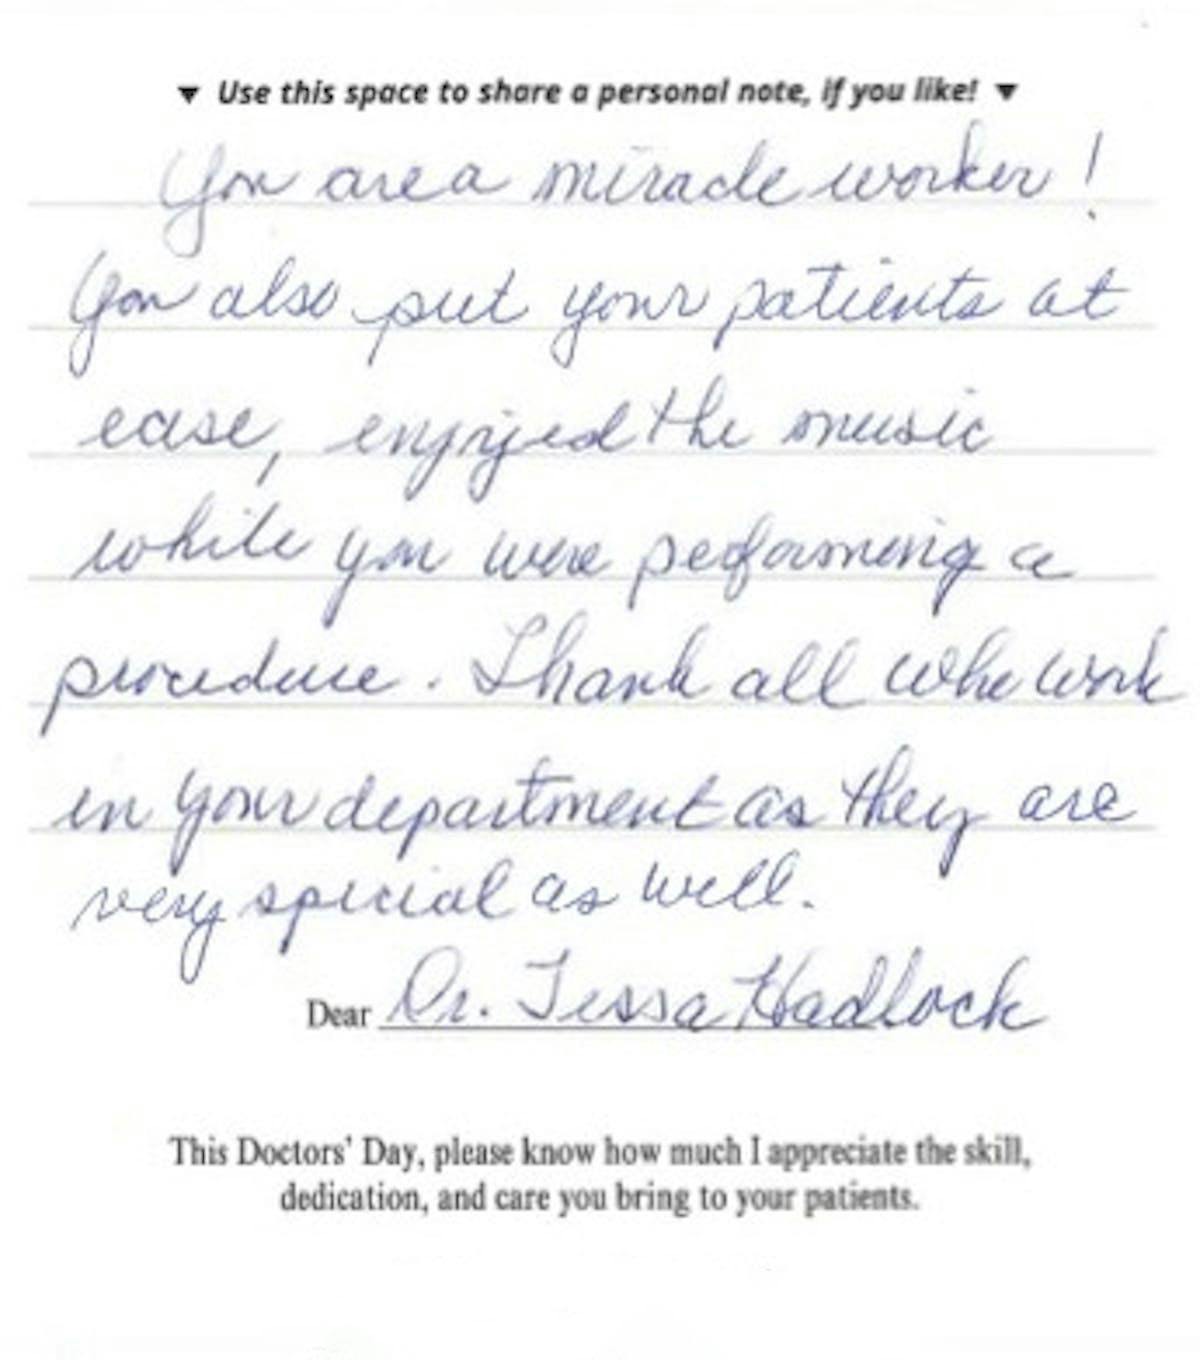 ▼ Use this space to share a personal note, if you like! ▼
You are a miracle worker!
You also put your patients at
ease, enjoyed the music
while you were performing a
procedure. Thank all who work
in your department as they are
very special as well.
Dear Dr. Tessa Hadlock
This Doctors' Day, please know how much I appreciate the skill,
dedication, and care you bring to your patients.